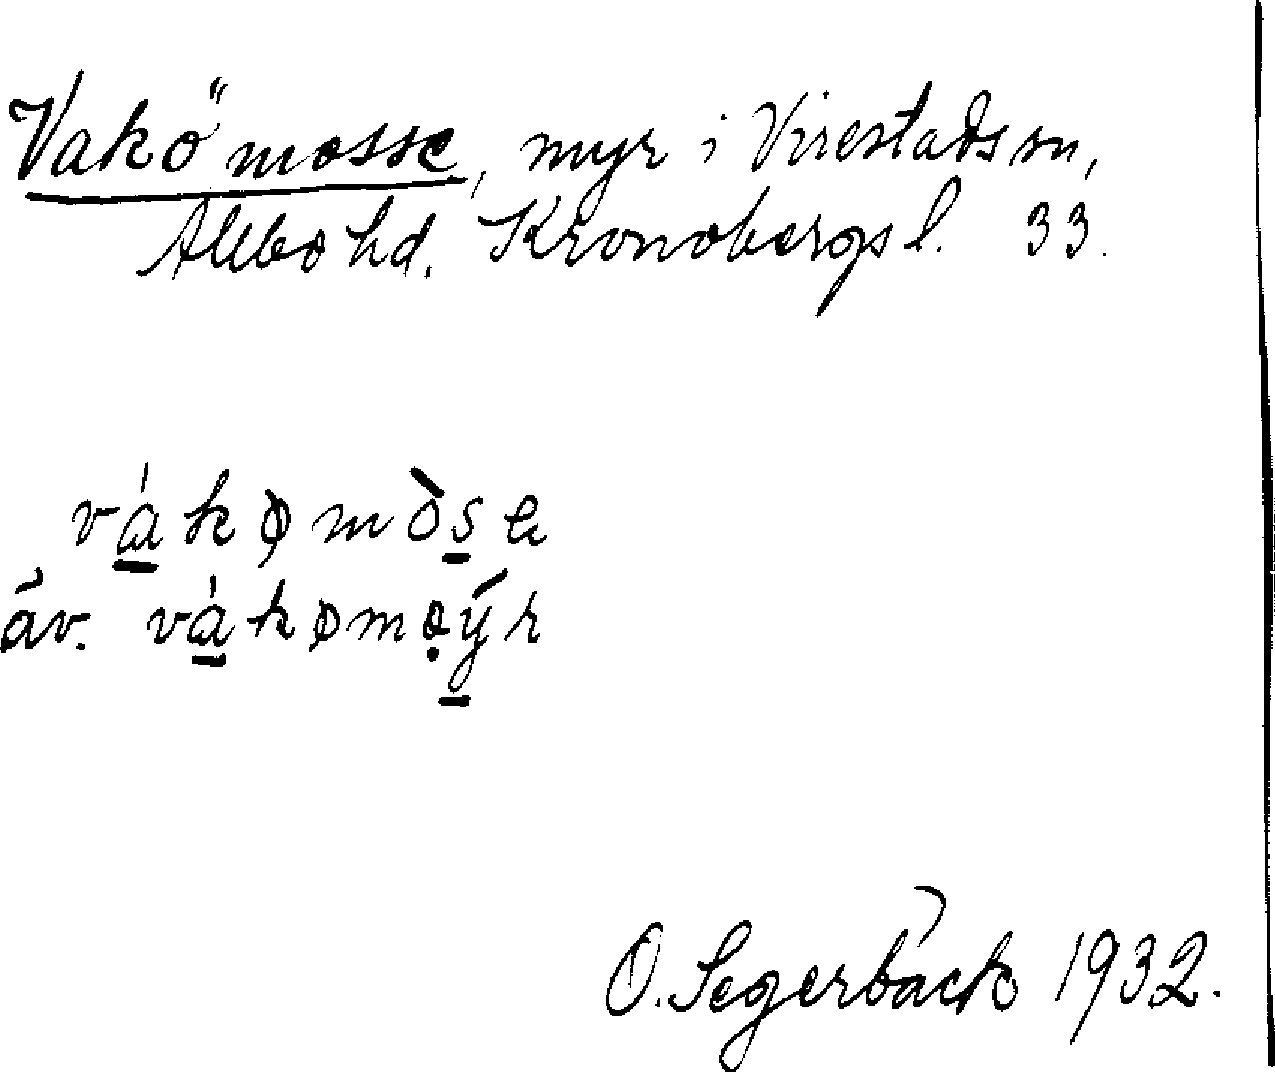 Vakö mosse, myr i Virestads sn,
Allbo hd. Kronobergs l. 33.
vákømòse
äv. vákømọýr
O. Segerbäck 1932.